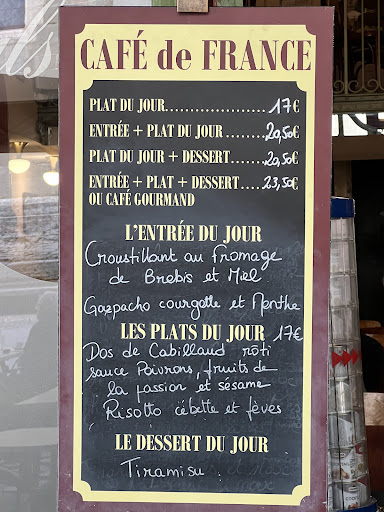 CAFÉ de FRANCE
PLAT DU JOUR...................... 17€
ENTRÉE + PLAT DU JOUR ........ 20,50€
PLAT DU JOUR + DESSERT....... 20,50€
ENTRÉE + PLAT + DESSERT.... 23,50€
OU CAFÉ GOURMAND
L'ENTRÉE DU JOUR
Croustillant au fromage
de Brebis et Miel
Gazpacho courgette et Menthe
LES PLATS DU JOUR 17€
Dos de Cabillaud rôti
sauce Poivrons, fruits de
la passion et sésame
Risotto cébette et fèves
LE DESSERT DU JOUR
Tiramisu